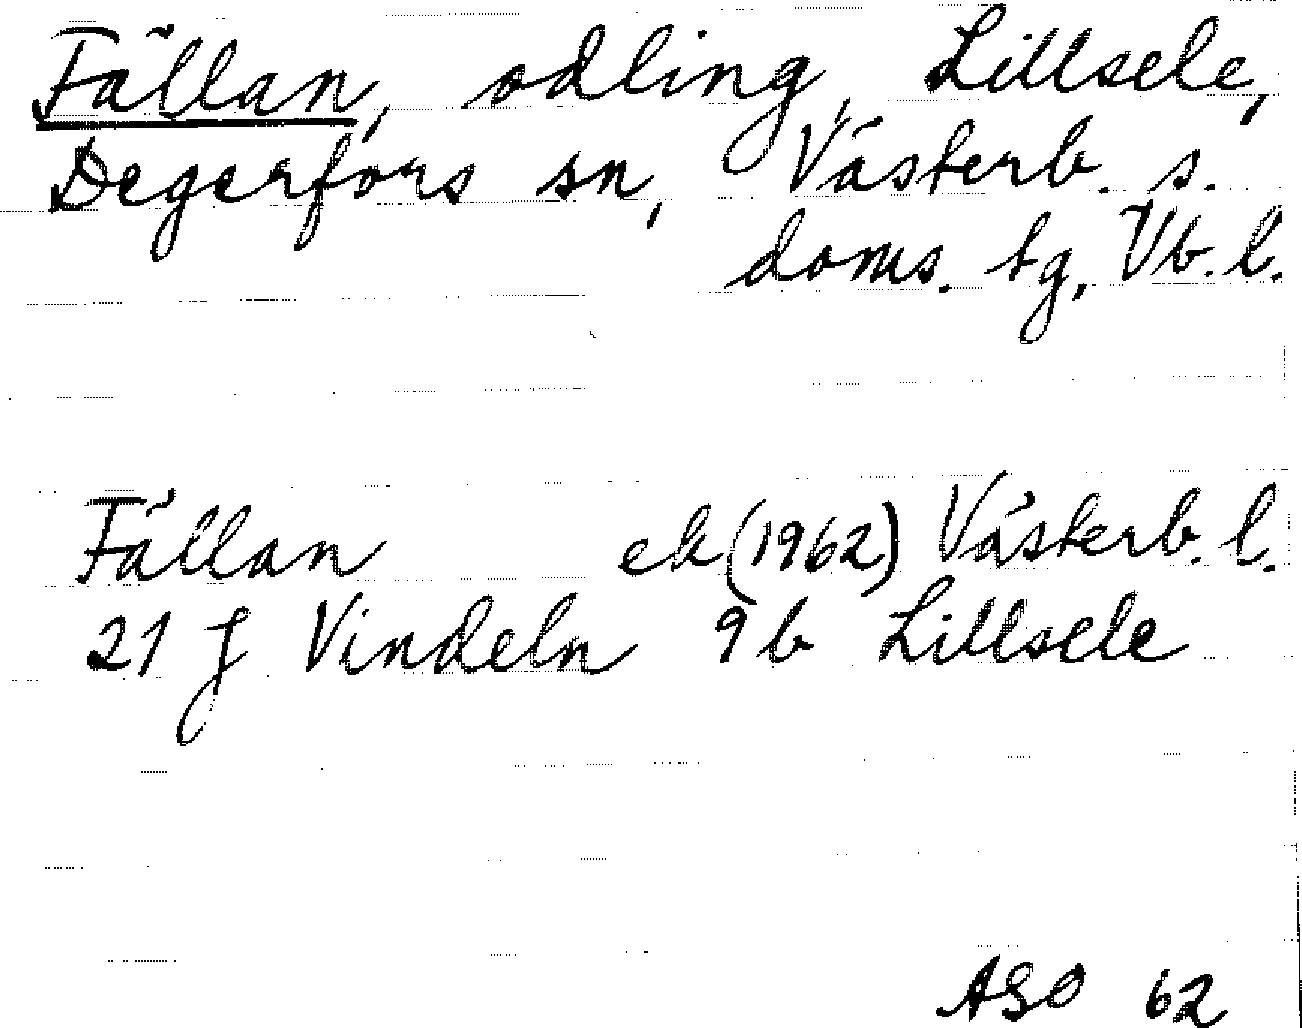 Fällan, odling, Lillsele,
Degerfors sn, Västerb. s.
doms. tg, Vb. l.
Fällan ek (1962) Västerb. l.
21 J Vindeln 9b Lillsele
ASO 62